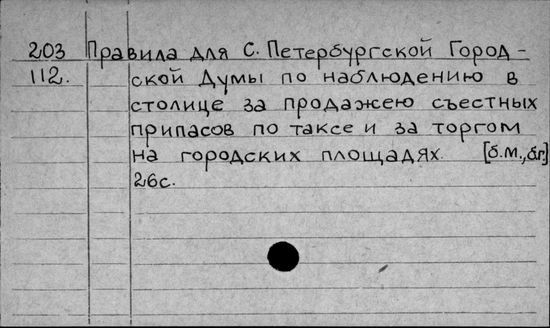 203 Правила для С. Петербургской Город-
112. ской Думы по наблюдению в
столице за продажею съестных
припасов по таксе и за торгом
на городских площадях. [б.м., б.г.]
26с.